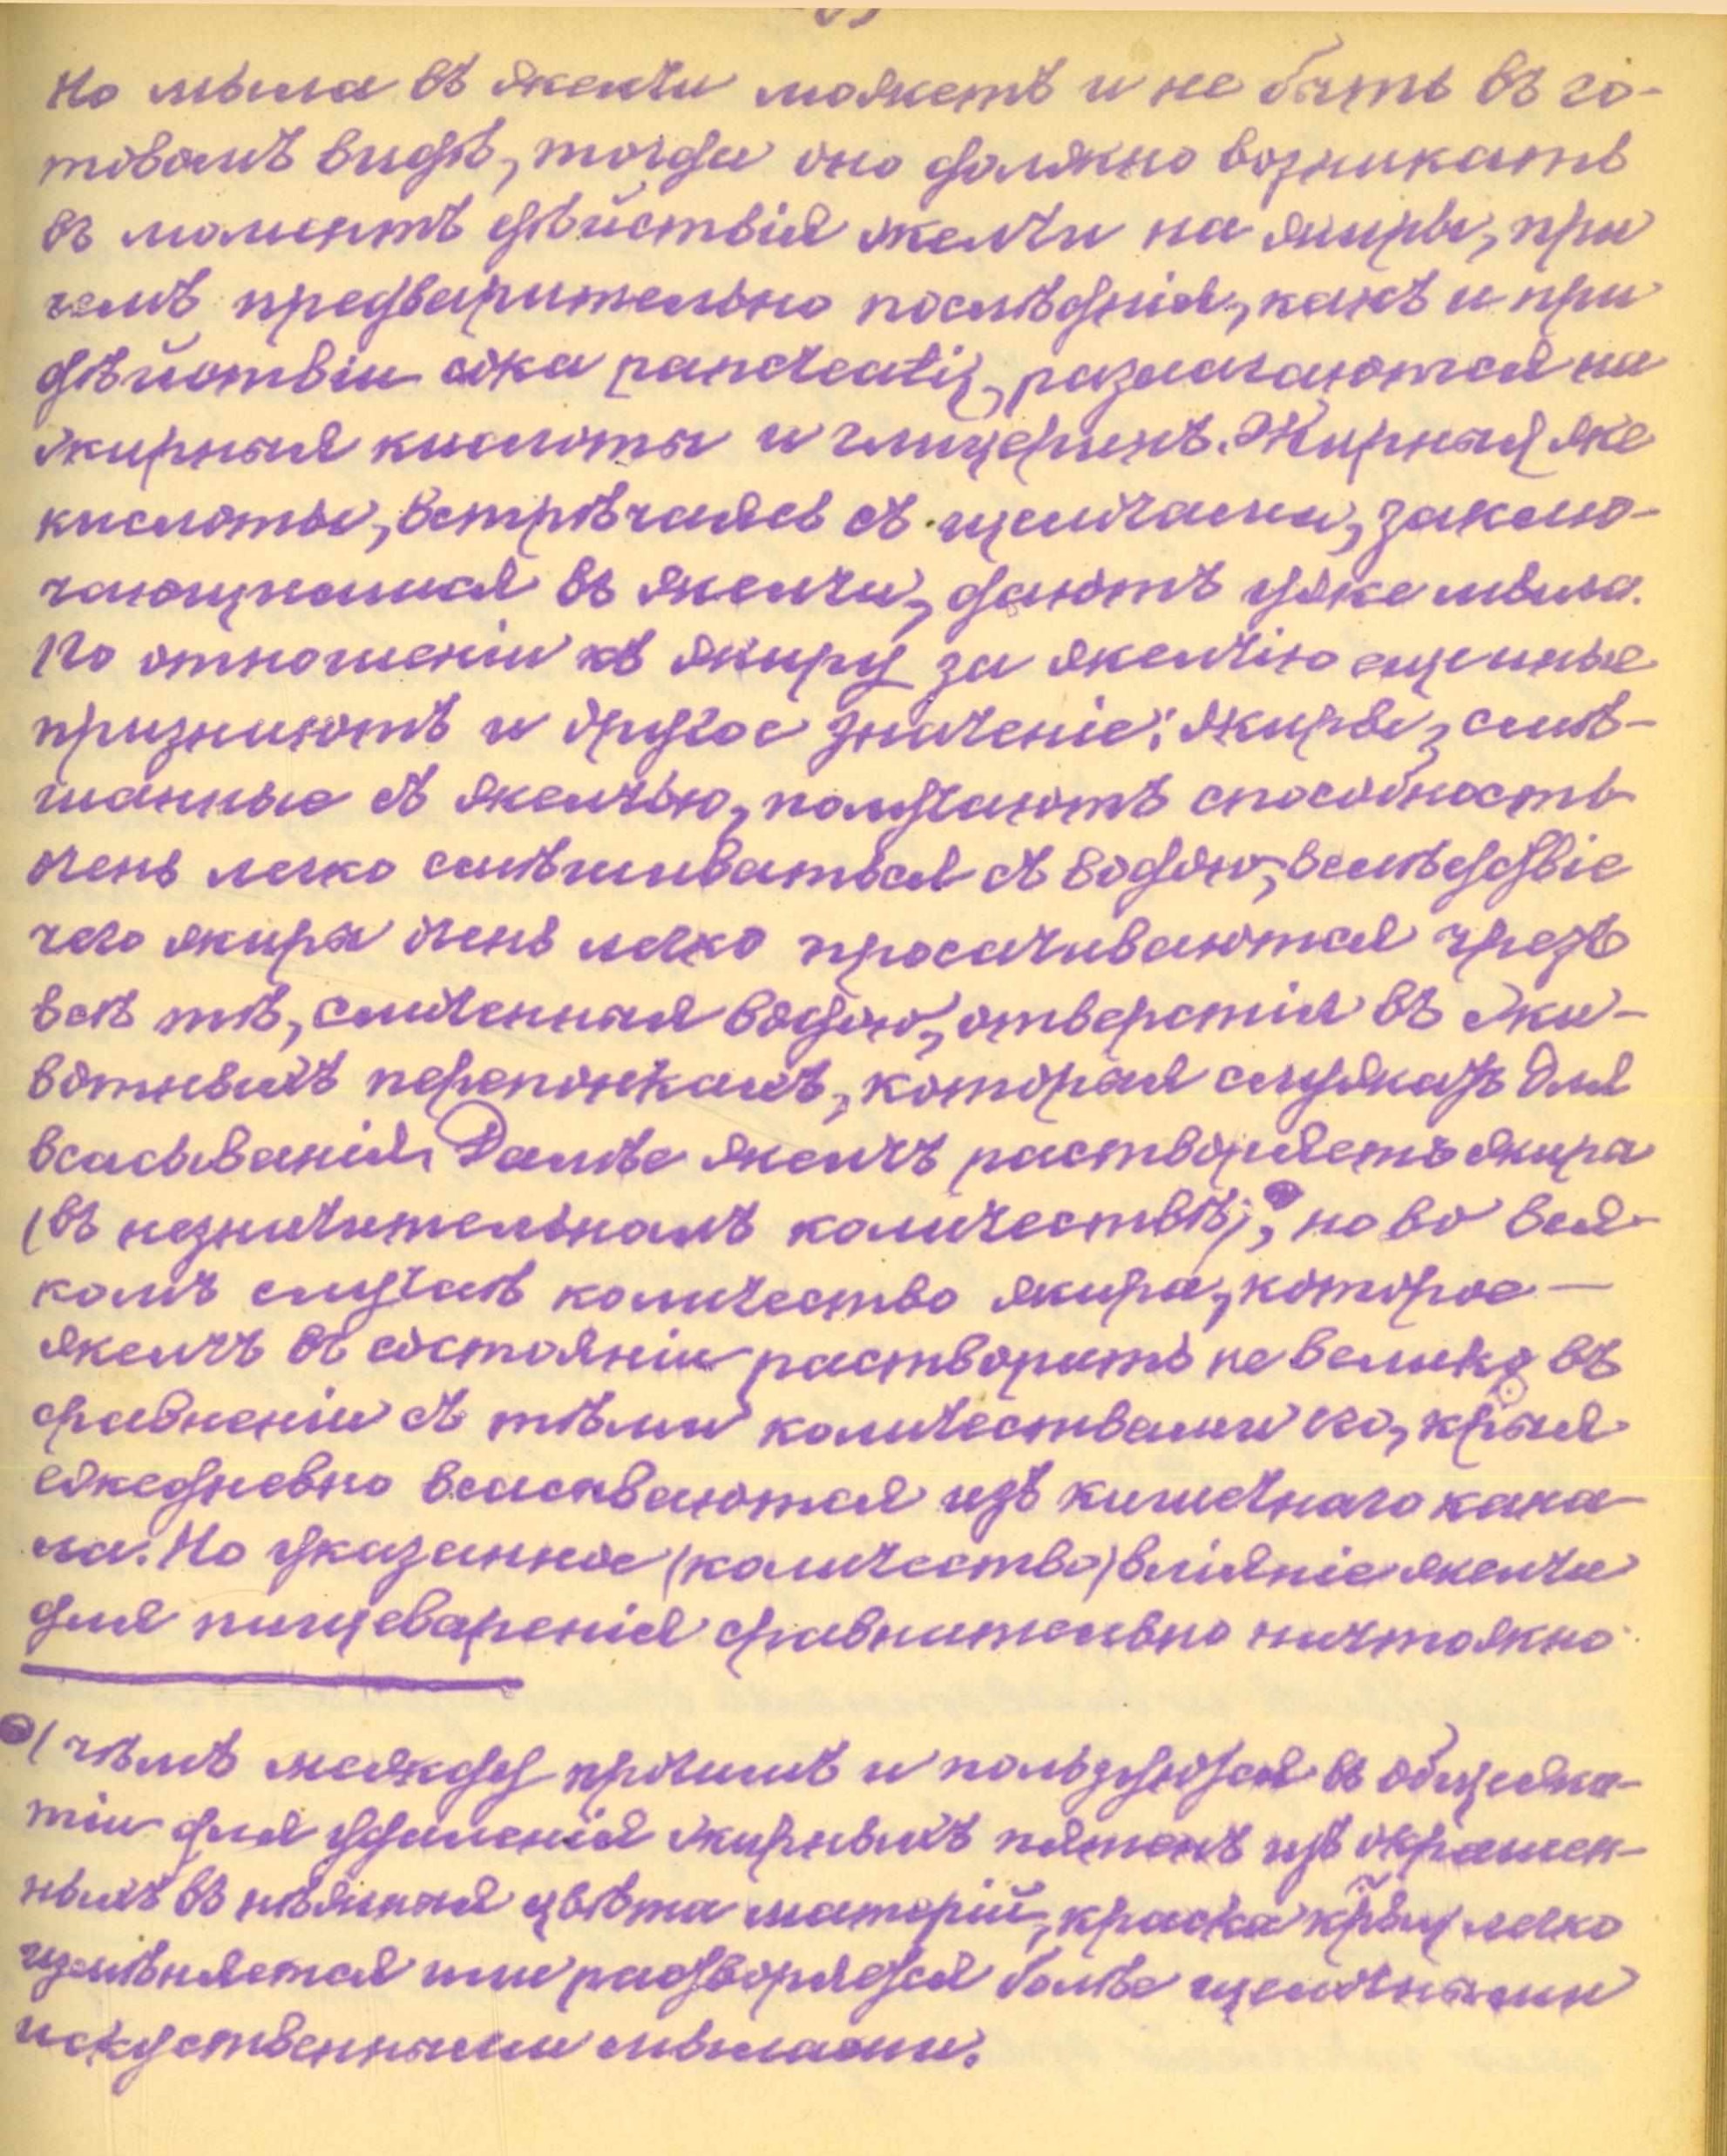 Но мыла въ желчи можетъ и не быть въ го-
товомъ видѣ, тогда оно должно возникать
въ моментъ дѣйствія желчи на жиры, при
чемъ предварительно послѣднія, какъ и при
дѣйствіи сока pancreatis, разлагаются на
жирныя кислоты и глицеринъ. Жирныя же
кислоты, встрѣчаясь съ щелочами, заклю-
чающимися въ желчи, даютъ уже мыла.
По отношеніи къ жиру за желчію ещеиные
признаютъ и другое значеніе: жиры, смѣ-
шанные съ желчью, получаютъ способность
очень легко смѣшиваться съ водою, вслѣдствіе
чего жиры очень легко просачиваются чрезъ
всѣ тѣ, смоченныя водою, отверстія въ жи-
вотныхъ перепонкахъ, которыя служатъ для
всасыванія. Далѣе желчь растворяетъ жиры
(въ незначительномъ количествѣ); но во вся-
комъ случаѣ количество жира, которое —
желчь въ состояніи растворить не велико въ
сравненіи съ тѣми количествами его, крыя
ежедневно всасываются изъ кишечнаго кана-
ла. Но указанное (количество) вліяніе желчи
для пищеваренія сравнительно ничтожно
( чѣмъ между прочимъ и пользуются въ общежи-
тіи для удаленія жирныхъ пятенъ изъ окрашен-
ныхъ въ нѣжныя цвѣта матерій, краска крыхъ легко
измѣняется или растворяется болѣе щелочными
искуственными мылами.